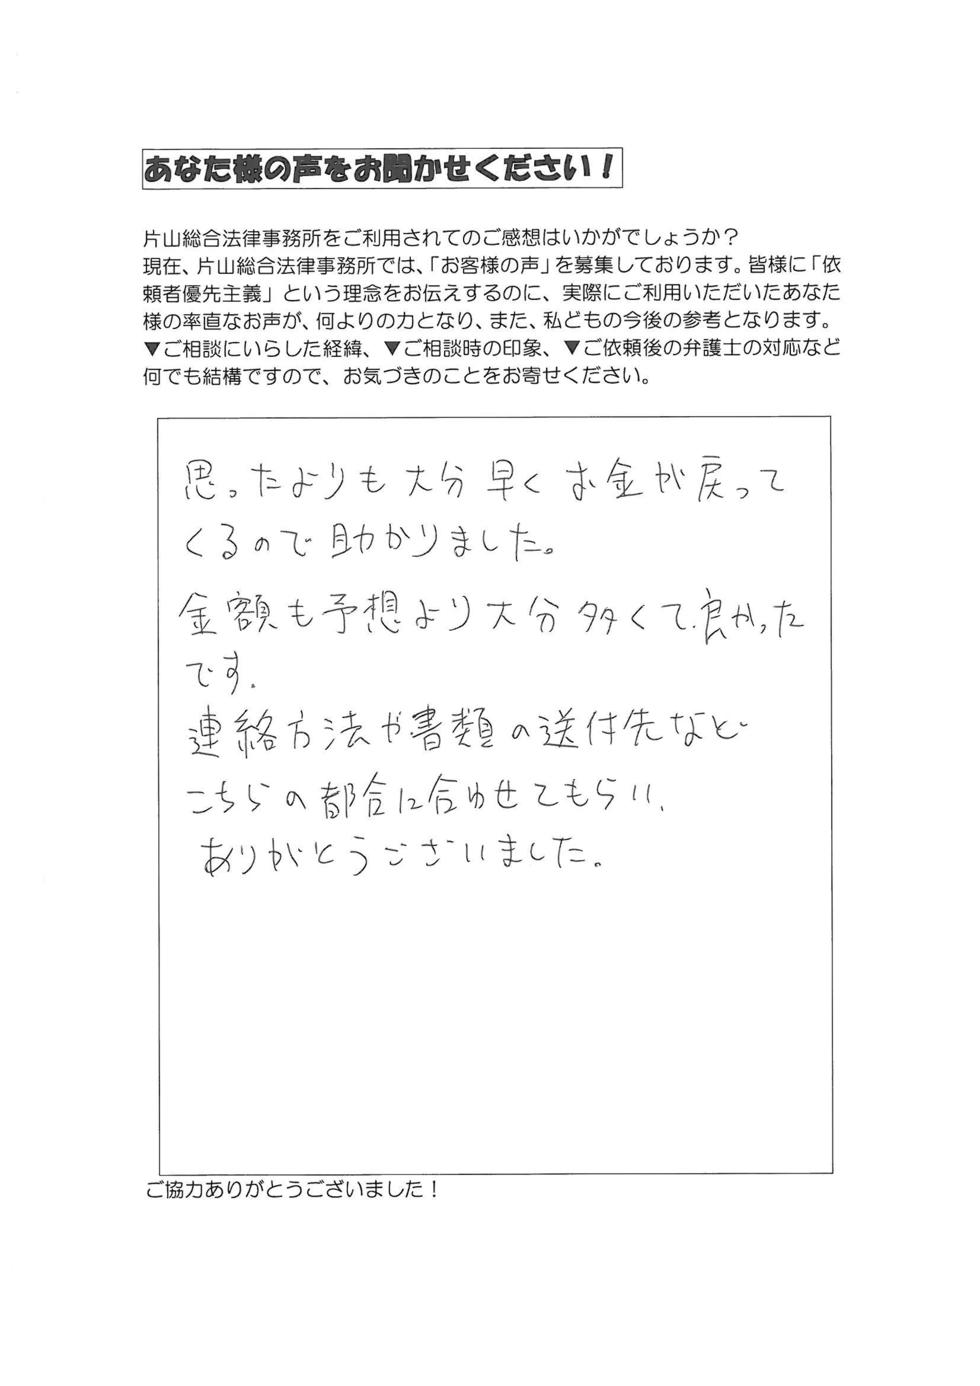 あなた様の声をお聞かせください！
片山総合法律事務所をご利用されてのご感想はいかがでしょうか？
現在、片山総合法律事務所では、「お客様の声」を募集しております。皆様に「依
頼者優先主義」という理念をお伝えするのに、実際にご利用いただいたあなた
様の率直なお声が、何よりの力となり、また、私どもの今後の参考となります。
▼ご相談にいらした経緯、▼ご相談時の印象、▼ご依頼後の弁護士の対応など
何でも結構ですので、お気づきのことをお寄せください。
思ったよりも大分早くお金が戻って
くるので助かりました。
金額も予想より大分多くて、良かった
です。
連絡方法や書類の送付先など
こちらの都合に合わせてもらい、
ありがとうございました。
ご協力ありがとうございました！